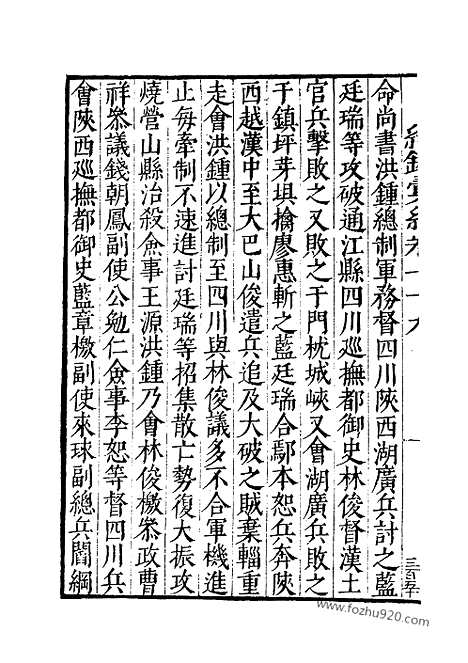 命尚書洪鍾總制軍務督四川陝西湖廣兵討之藍
廷瑞等攻破通江縣四川巡撫都御史林俊督漢土
官兵擊敗之又敗之于門枕城峽又會湖廣兵敗之
于鎮坪芽埧擒廖惠斬之藍廷瑞合鄢本恕兵奔陝
西越漢中至大巴山俊遣兵追及大破之賊棄輜重
走會洪鍾以總制至四川與林俊議多不合軍機進
止每牽制不速進討廷瑞等招集散亡勢復大振攻
燒營山縣治殺僉事王源洪鍾乃會林俊檄叅政曹
祥叅議錢朝鳳副使公勉仁僉事李恕等督四川兵
會陝西巡撫都御史藍章檄副使來球副總兵閻綱
www.fozhu920.com